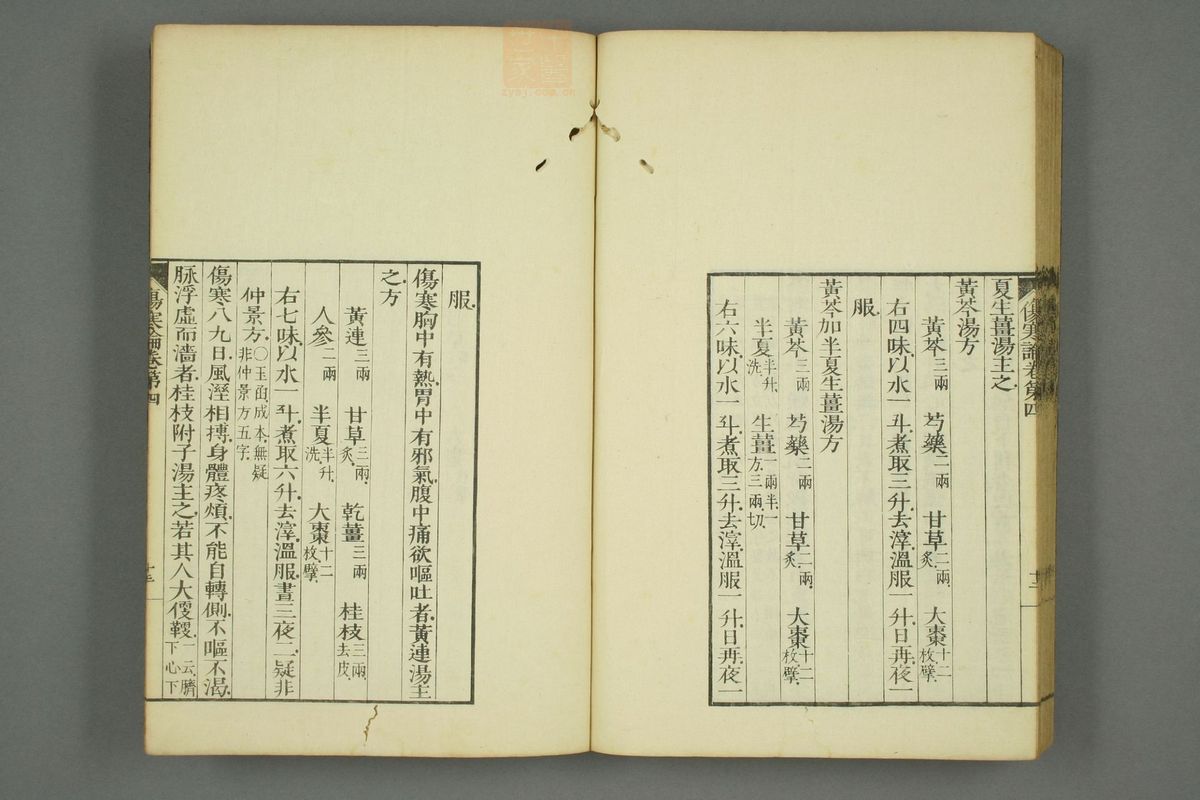 傷寒論卷第四
十三
夏生薑湯主之
黃芩湯方
黃芩三兩 芍藥二兩 甘草二兩炙 大棗十二枚擘
右四味以水一斗煮取三升去滓溫服一升日再夜一
服
黃芩加半夏生薑湯方
黃芩三兩 芍藥二兩 甘草二兩炙 大棗十二枚擘
半夏半升洗 生薑一兩半一方三兩切
右六味以水一斗煮取三升去滓溫服一升日再夜一
服
傷寒胸中有熱胃中有邪氣腹中痛欲嘔吐者黃連湯主
之方
黃連三兩 甘草三兩炙 乾薑三兩 桂枝三兩去皮
人參二兩 半夏半升洗 大棗十二枚擘
右七味以水一斗煮取六升去滓溫服晝三夜二疑非
仲景方〇玉函成本無疑非仲景方五字
傷寒八九日風溼相搏身體疼煩不能自轉側不嘔不渴
脉浮虛而濇者桂枝附子湯主之若其人大便鞕一云臍下心下
傷寒論卷第四
中醫
zysj.com.cn